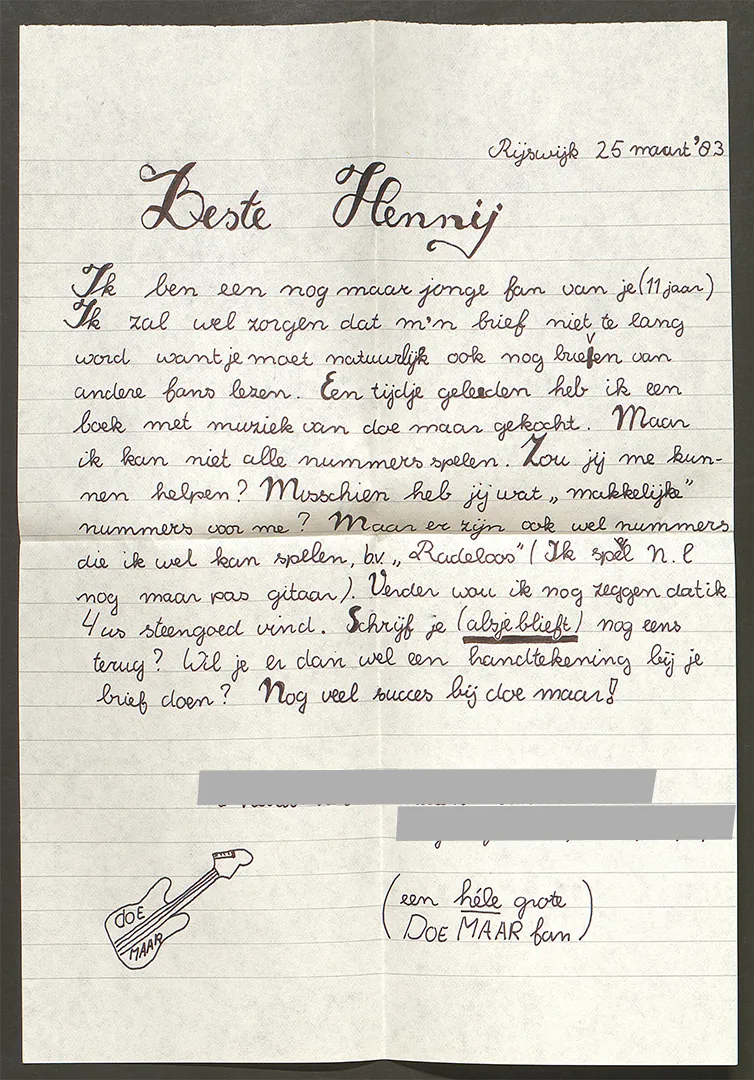 Rijswijk 25 maart '83
Beste Hennij
Ik ben een nog maar jonge fan van je (11 jaar)
Ik zal wel zorgen dat m'n brief niet te lang
word want je moet natuurlijk ook nog brieven van
andere fans lezen. Een tijdje geleden heb ik een
boek met muziek van doe maar gekocht. Maar
ik kan niet alle nummers spelen. Zou jij me kun-
nen helpen? Misschien heb jij wat „makkelijke”
nummers voor me? Maar er zijn ook wel nummers
die ik wel kan spelen, b.v. „Radeloos” (Ik speel n.l
nog maar pas gitaar). Verder wou ik nog zeggen dat ik
4us steengoed vind. Schrijf je (alsjeblieft) nog eens
terug? Wil je er dan wel een handtekening bij je
brief doen? Nog veel succes bij doe maar!
DOE
MAAR
(een héle grote
DOE MAAR fan)